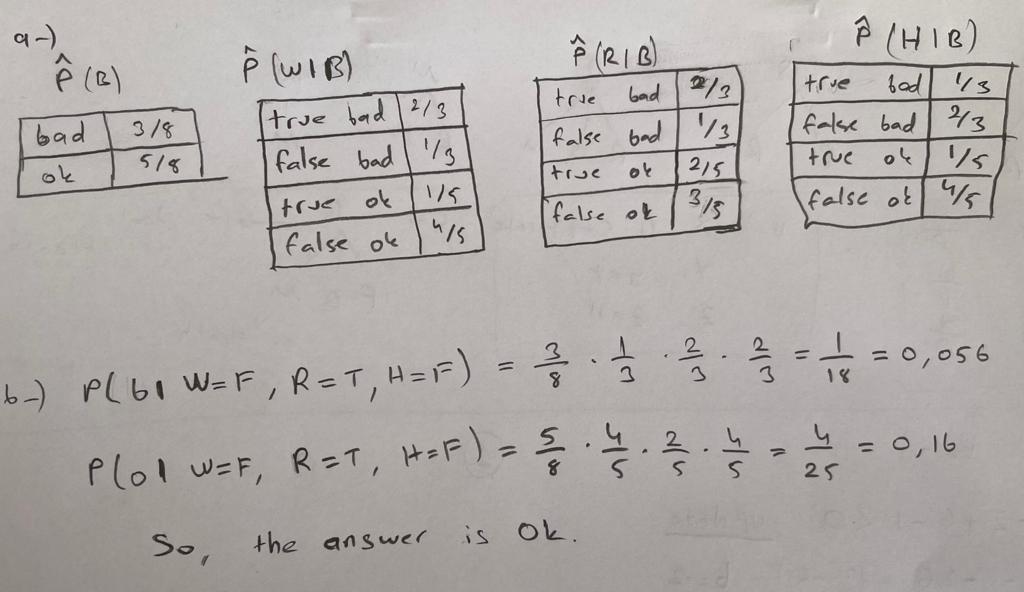 a-)
P̂ (B)
bad 3/8
ok 5/8
P̂ (W|B)
true bad 2/3
false bad 1/3
true ok 1/5
false ok 4/5
P̂ (R|B)
true bad 2/3
false bad 1/3
true ok 2/5
false ok 3/5
P̂ (H|B)
true bad 1/3
false bad 2/3
true ok 1/5
false ok 4/5
b-) P(b| W=F, R=T, H=F) = 3/8 · 1/3 · 2/3 · 2/3 = 1/18 = 0,056
P(o| W=F, R=T, H=F) = 5/8 · 4/5 · 2/5 · 4/5 = 4/25 = 0,16
So, the answer is Ok.